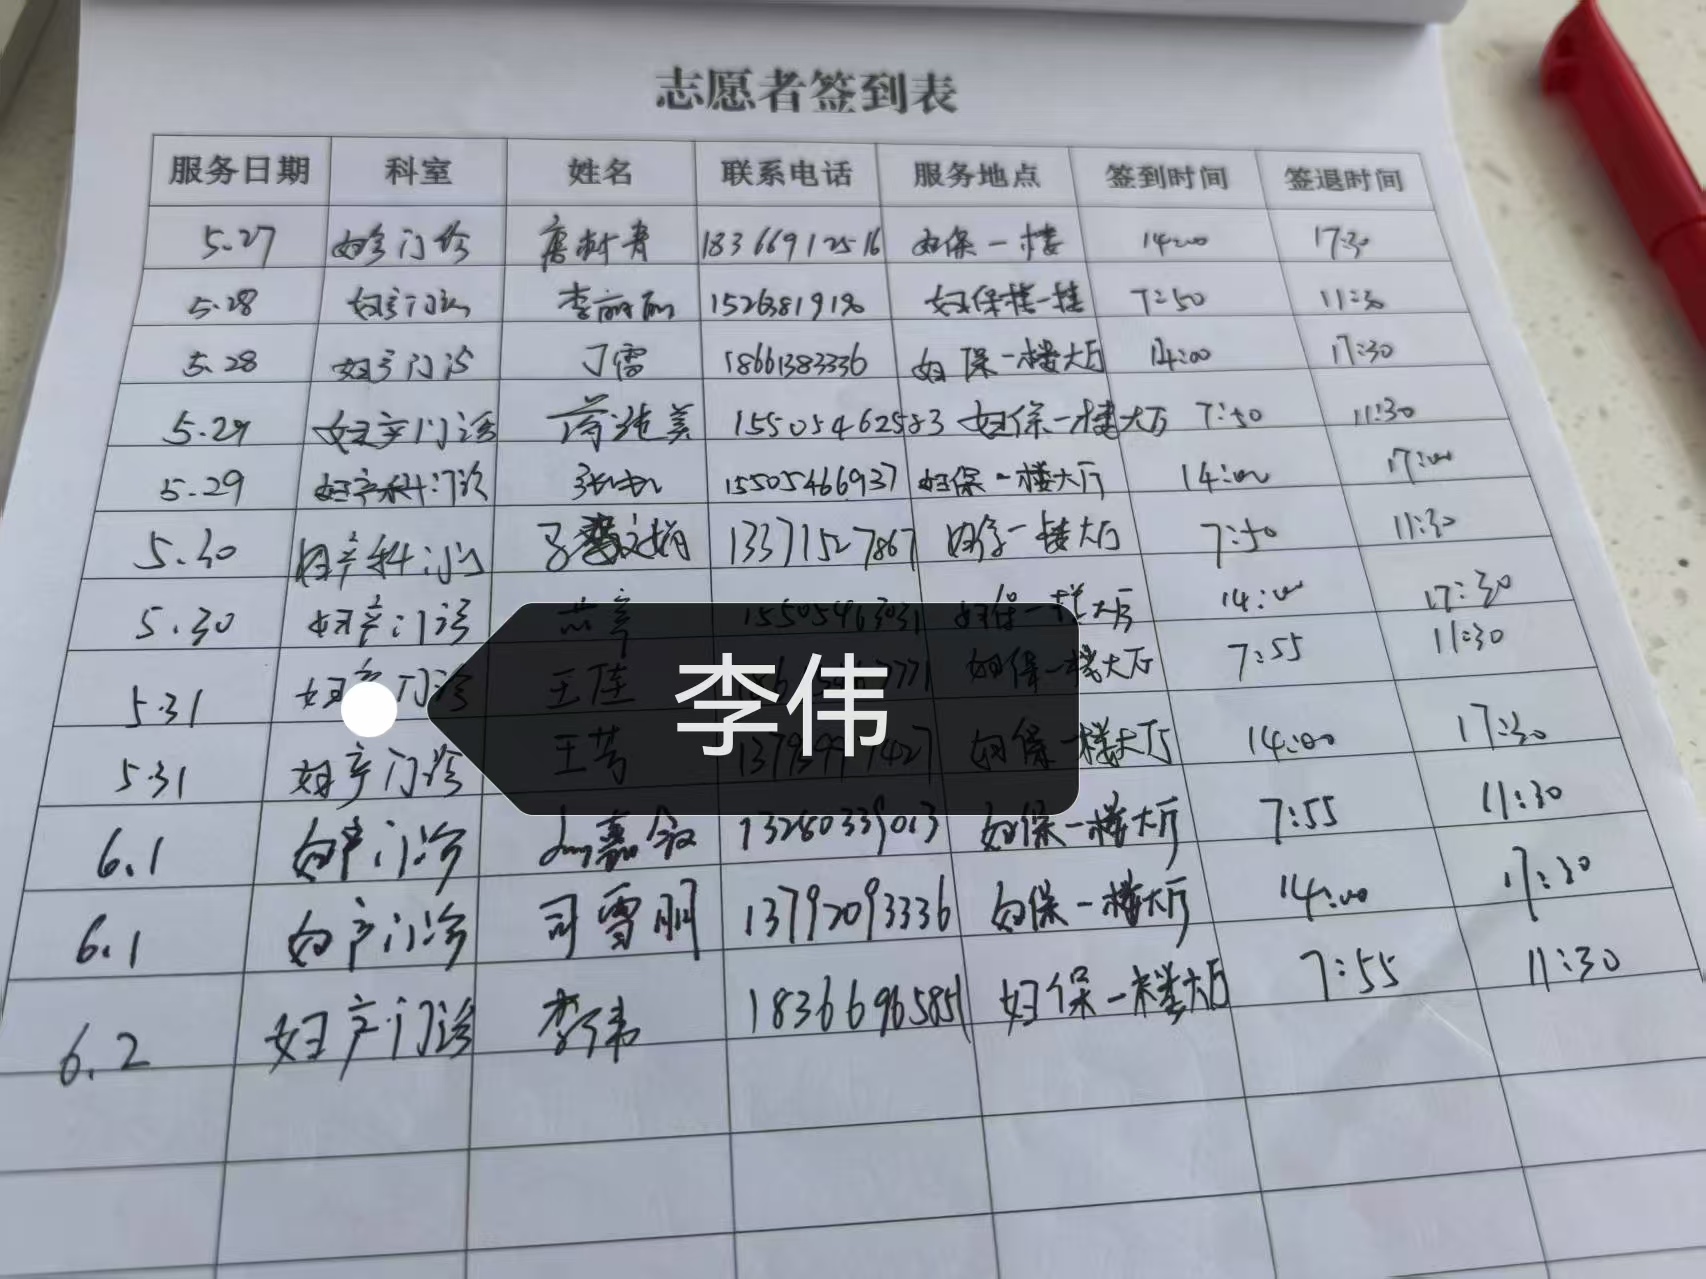 志愿者签到表
服务日期 科室 姓名 联系电话 服务地点 签到时间 签退时间
5.27 妇产门诊 18366912516 妇保一楼 14:00 17:30
5.28 妇产门诊 李丽丽 妇保楼一楼 7:50 11:30
5.28 妇产门诊 丁雪 18661383336 妇保一楼大厅 14:00 17:30
5.29 妇产门诊 15505462583 妇保一楼大厅 7:50 11:30
5.29 妇产科门诊 15505466937 妇保一楼大厅 14:00 17:00
5.30 妇产科门诊 13371527867 妇保一楼大厅 7:50 11:30
5.30 妇产门诊 15505463031 妇保一楼大厅 14:00 17:30
5.31 妇产门诊 王佳 妇保一楼大厅 7:55 11:30
李伟
5.31 妇产门诊 王芳 妇保一楼大厅 14:00 17:30
6.1 妇产门诊 13280339013 妇保一楼大厅 7:55 11:30
6.1 妇产门诊 司雪朋 13792093336 妇保一楼大厅 14:00 17:30
6.2 妇产门诊 李伟 18366965851 妇保一楼大厅 7:55 11:30